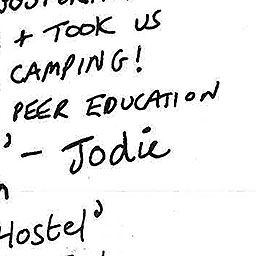 + TOOK US
CAMPING!
PEER EDUCATION
' - Jodie
Hostel'